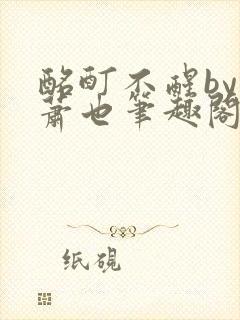 酩酊不醒by
萧也笔趣阁
纸砚